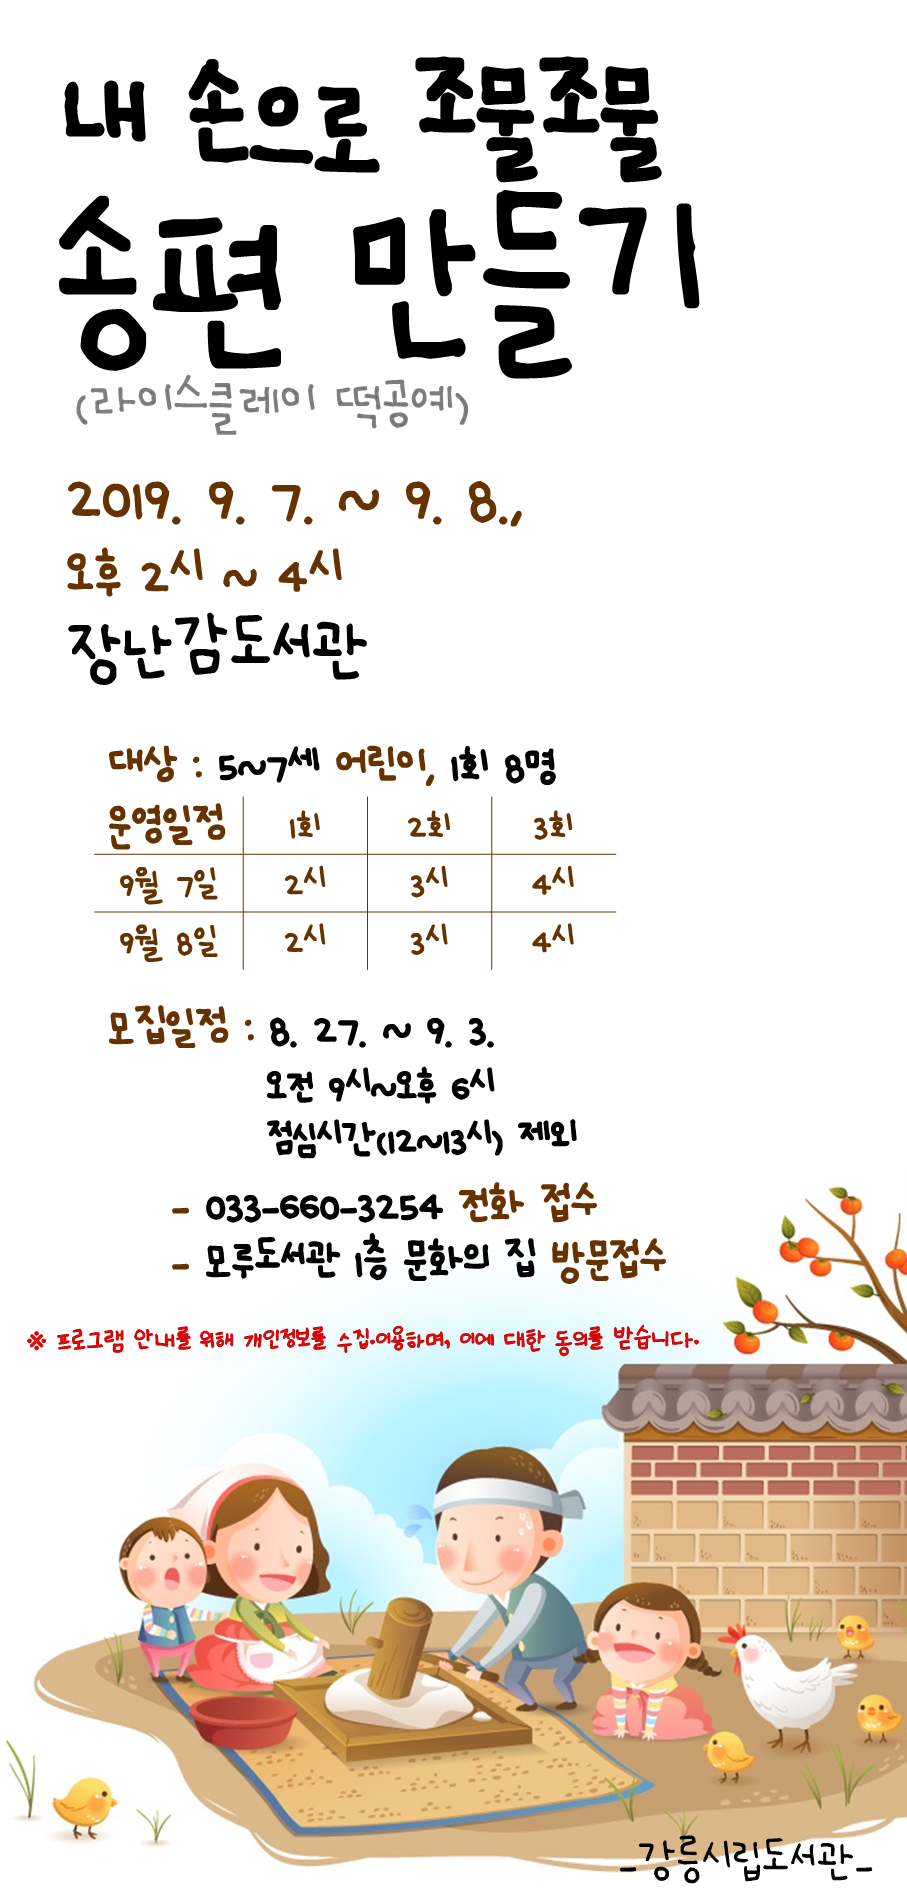 내 손으로 조물조물
송편 만들기
(라이스클레이 떡공예)
2019. 9. 7. ~ 9. 8.,
오후 2시 ~ 4시
장난감도서관
대상 : 5~7세 어린이, 1회 8명
운영일정 1회 2회 3회
9월 7일 2시 3시 4시
9월 8일 2시 3시 4시
모집일정 : 8. 27. ~ 9. 3.
오전 9시~오후 6시
점심시간(12~13시) 제외
- 033-660-3254 전화 접수
- 모루도서관 1층 문화의 집 방문접수
※ 프로그램 안내를 위해 개인정보를 수집·이용하며, 이에 대한 동의를 받습니다.
-강릉시립도서관-